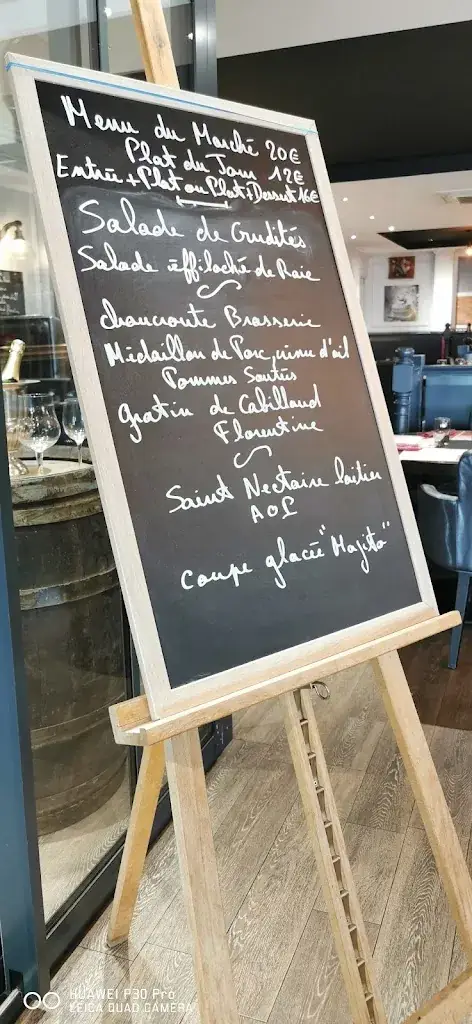 Menu du Marché 20€
Plat du Jour 12€
Entrée + Plat ou Plat + Dessert 16€
Salade de Crudités
Salade effiloché de Raie
Choucroute Brasserie
Médaillon de Porc, crème d'ail
Pommes Sautés
gratin de Cabillaud
Florentine
Saint Nectaire laitier
AOP
Coupe glacée "Mojito"
HUAWEI P30 Pro
LEICA QUAD CAMERA